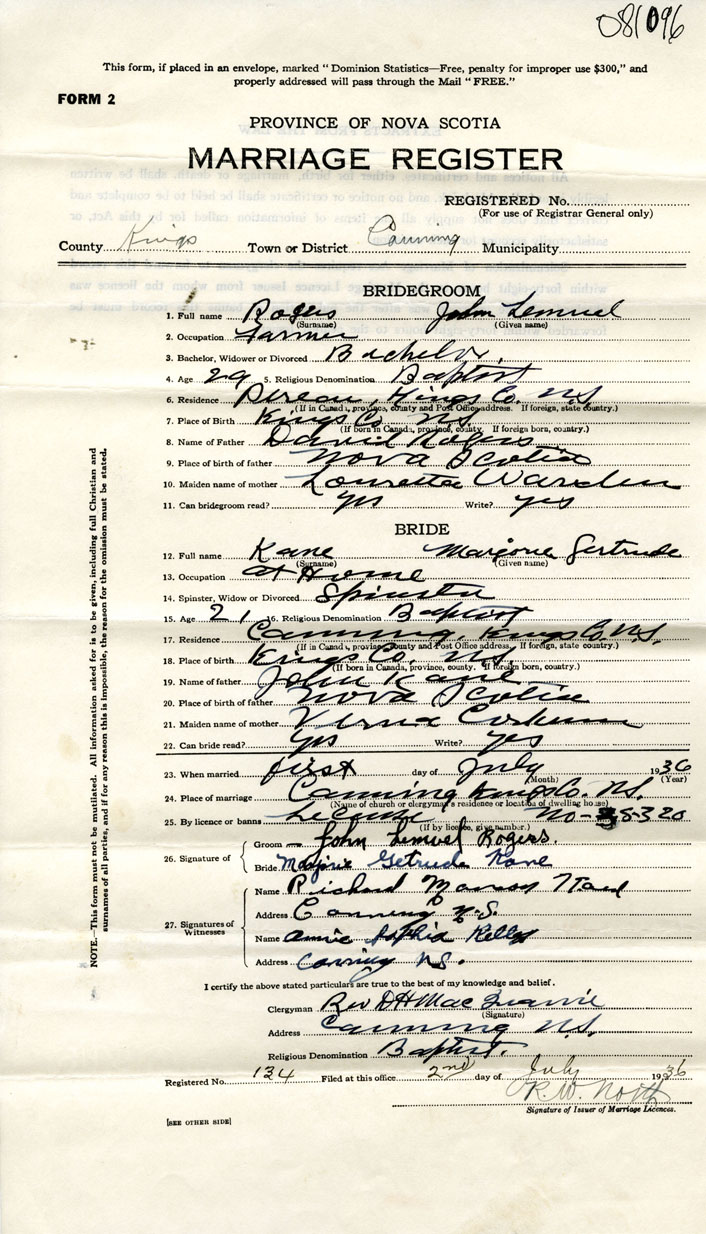 081096
This form, if placed in an envelope, marked "Dominion Statistics—Free, penalty for improper use $300," and
properly addressed will pass through the Mail "FREE."
FORM 2
PROVINCE OF NOVA SCOTIA
MARRIAGE REGISTER
REGISTERED No.
(For use of Registrar General only)
County Kings Town or District Canning Municipality
BRIDEGROOM
1. Full name Rogers John Lemuel
(Surname) (Given name)
2. Occupation Farmer
3. Bachelor, Widower or Divorced Bachelor
4. Age 29 5. Religious Denomination Baptist
6. Residence Pereau, Kings Co. N.S.
(If in Canada, province, county and Post Office address. If foreign, state country.)
7. Place of Birth Kings Co. N.S.
(If born in Canada, province, county. If foreign born, country.)
8. Name of Father David Rogers
9. Place of birth of father Nova Scotia
10. Maiden name of mother Louretta
11. Can bridegroom read? yes Write? yes
BRIDE
12. Full name Kane Marjorie Gertrude
(Surname) (Given name)
13. Occupation at Home
14. Spinster, Widow or Divorced Spinster
15. Age 21 16. Religious Denomination Baptist
17. Residence Canning, Kings Co. N.S.
(If in Canada, province, county and Post Office address. If foreign, state country.)
18. Place of birth Kings Co. N.S.
(If born in Canada, province, county. If foreign born, country.)
19. Name of father John Kane
20. Place of birth of father Nova Scotia
21. Maiden name of mother Verna
22. Can bride read? yes Write? yes
23. When married first day of July 1936
(Month) (Year)
24. Place of marriage Canning Kings Co. N.S.
(Name of church or clergyman's residence or location of dwelling house)
25. By licence or banns License No-
(If by licence, give number.)
26. Signature of
Groom John Lemuel Rogers.
Bride Marjorie Getrude Kane
27. Signatures of Witnesses
Name Richard
Address Canning N.S.
Name Annie Sophia Kelly
Address Canning N.S.
I certify the above stated particulars are true to the best of my knowledge and belief.
Clergyman Rev D H Mac
(Signature)
Address Canning N.S.
Religious Denomination Baptist.
Registered No. 134 Filed at this office 2nd day of July 1936
R. W. North
Signature of Issuer of Marriage Licences.
[SEE OTHER SIDE]
NOTE.—This form must not be mutilated. All information asked for is to be given, including full Christian and
surnames of all parties, and if for any reason this is impossible, the reason for the omission must be stated.